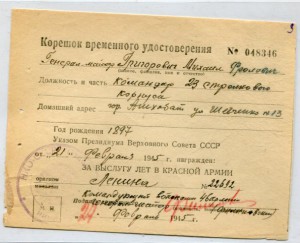 Корешок временного удостоверения
№ 048346
Генерал-майор Григорович Михаил Фролович
Должность и часть командир 23 стрелкового
корпуса
Домашний адрес гор. Ашхабат ул Шевченко № 13
Год рождения 1897
Указом Президиума Верховного Совета СССР
от 21 Февраля 1945 г. награжден:
ЗА ВЫСЛУГУ ЛЕТ В КРАСНОЙ АРМИИ
Ленина № 22612
Февраля 1945 г.